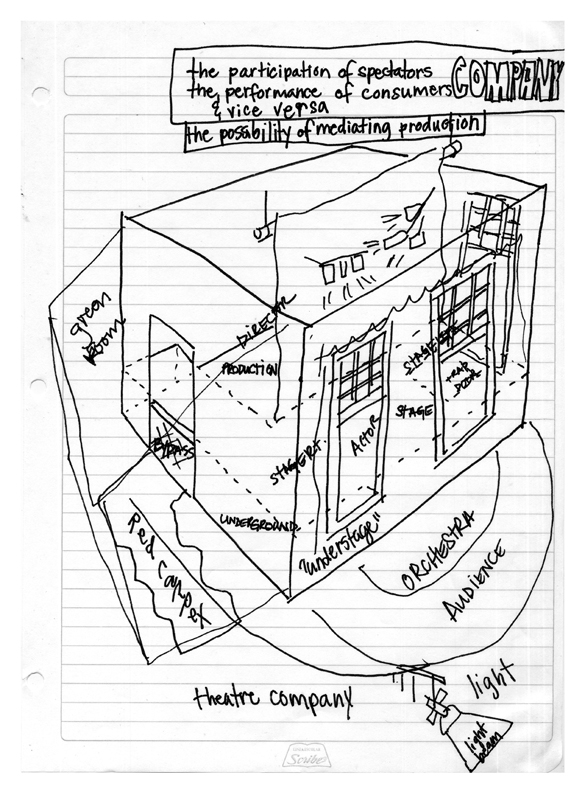 the participation of spectators
the performance of consumers
& vice versa
COMPANY
the possibility of mediating production
green
room
DIRECTOR
PRODUCTION
STAGE
TRAP
DOOR
STAGE
ACTOR
STAGE RT.
UNDERGROUND
"understage"
ORCHESTRA
AUDIENCE
Red Carpet
theatre company
light
light
beam
Scribe